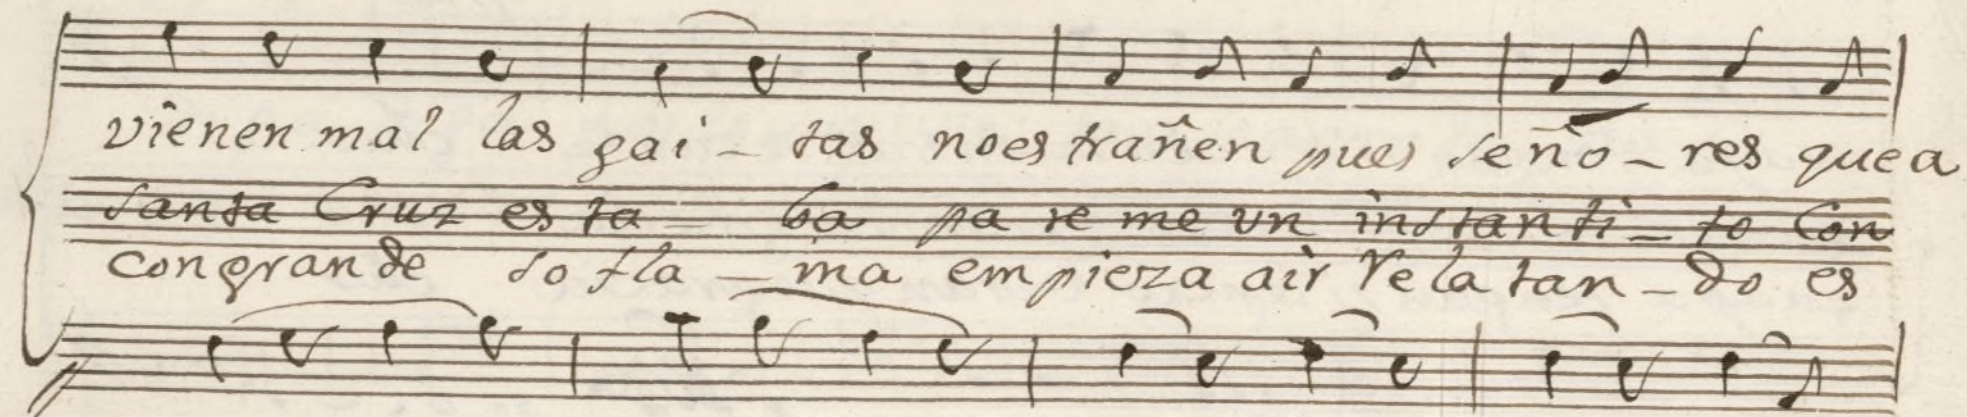 vienen mal las gai - tas noes trañen pues seño - res que a
santa Cruz es ta - ba pa re me un instanti - to Con
con grande sofla - ma empieza air Relatan - do es